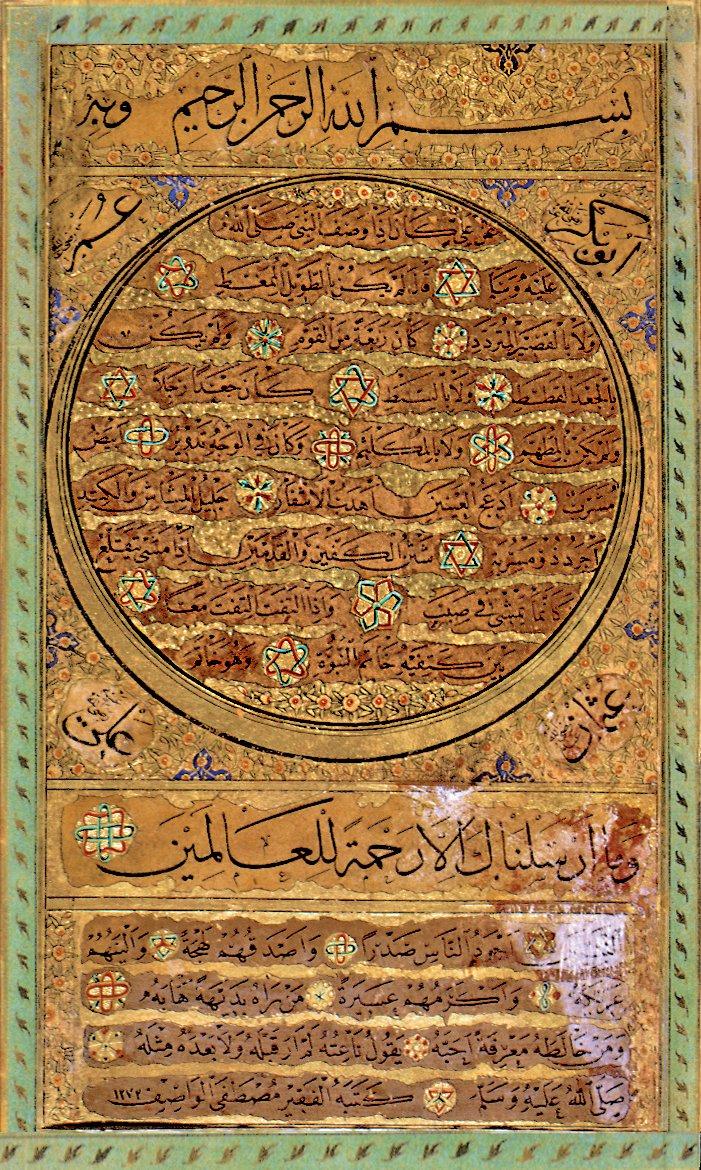 بسم الله الرحمن الرحيم وبه
ابو بكر
عمر
عن علي كان اذا وصف النبي صلى الله
عليه وسلم قال لم يكن بالطويل الممغط
ولا بالقصير المتردد كان ربعة من القوم ولم يكن
بالجعد القطط ولا بالسبط كان جعدا رجلا
ولم يكن بالمطهم ولا بالمكلثم وكان في الوجه تدوير ابيض
مشرب ادعج العينين اهدب الاشفار جليل المشاش والكتد
اجرد ذو مسربة شثن الكفين والقدمين اذا مشى يتقلع
كانما يمشي في صبب واذا التفت التفت معا
بين كتفيه خاتم النبوة وهو خاتم
عثمان
علي
وما ارسلناك الا رحمة للعالمين
النبيين اجود الناس صدرا واصدقهم لهجة والينهم
عريكة واكرمهم عشيرة من رآه بديهة هابه
ومن خالطه معرفة احبه يقول ناعته لم ار قبله ولا بعده مثله
صلى الله عليه وسلم كتبه الفقير مصطفى الواصف ١٢٧٢